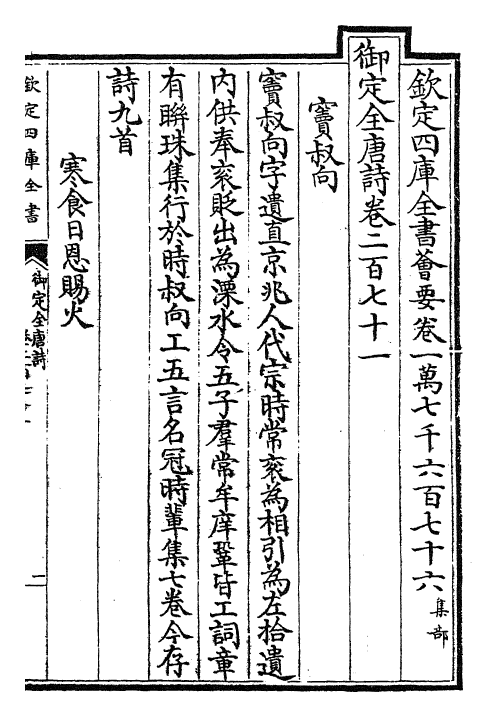 欽定四庫全書薈要卷一萬七千六百七十六 集部
御定全唐詩卷二百七十一
竇叔向
竇叔向字遺直京兆人代宗時常衮為相引為左拾遺
內供奉衮貶出為溧水令五子羣常牟庠鞏皆工詞章
有聨珠集行於時叔向工五言名冠時輩集七卷今存
詩九首
寒食日恩賜火
欽定四庫全書
御定全唐詩
二